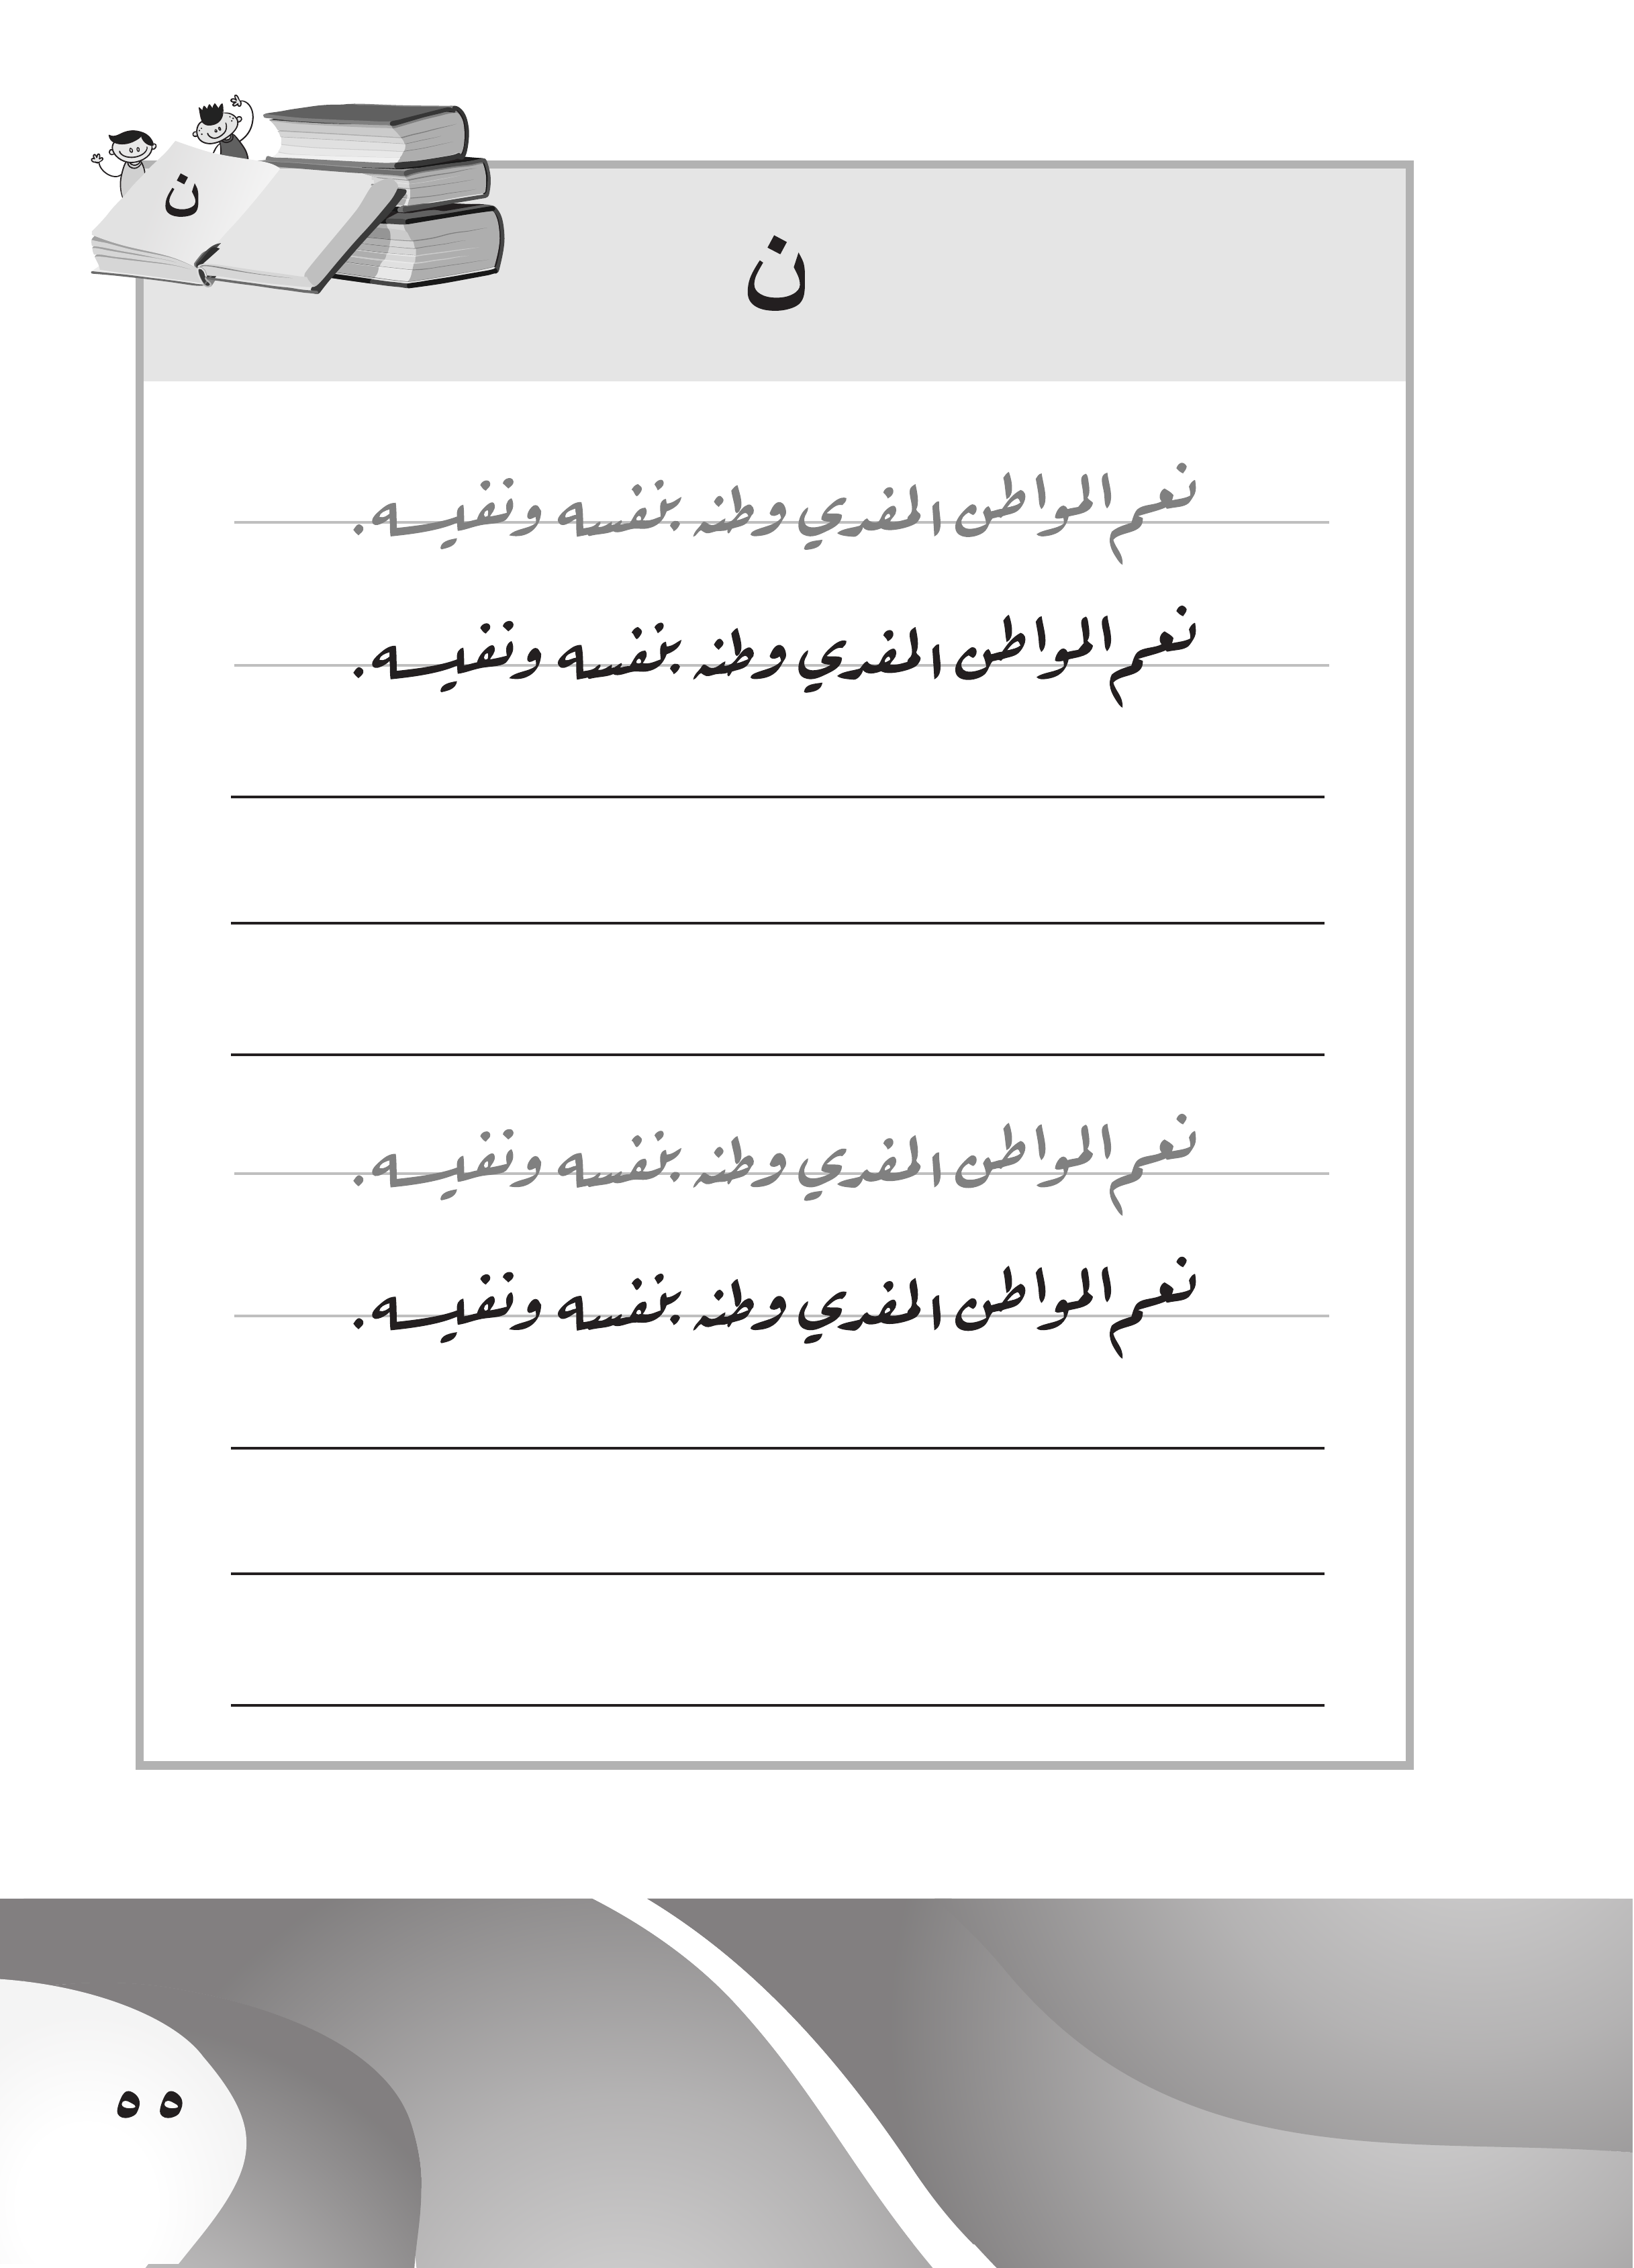 ن
ن
نعم المواطن المفدي وطنه بنفسه ونفيسه.
نعم المواطن المفدي وطنه بنفسه ونفيسه.
نعم المواطن المفدي وطنه بنفسه ونفيسه.
نعم المواطن المفدي وطنه بنفسه ونفيسه.
٥٥